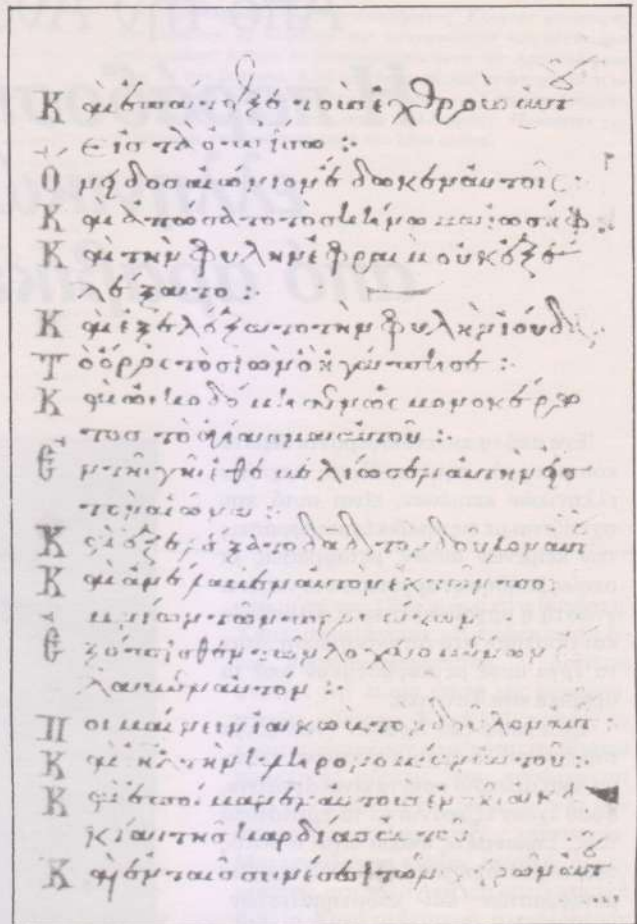 Καὶ ἐπάταξε τοὺς ἐχθροὺς αὐτ
εἰς τὰ ὀπίσω :
Ὄνηδος αἰώνιον ἔδωκεν αὐτοῖς :
Καὶ ἀπώσατο τὸ σκήνωμα ἰωσήφ :
Καὶ τὴν φυλὴν ἐφραὶμ οὐκ ἐξε
λέξατο :
Καὶ ἐξελέξατο τὴν φυλὴν ἰούδα
Τὸ ὄρος τὸ σιὼν ὃ ἠγάπησε :
Καὶ ὠκοδόμησεν ὡς μονοκέρω
τος τὸ ἁγίασμα αὐτοῦ :
Ἐν τῇ γῇ ἐθεμελίωσεν αὐτὴν εἰς
τὸν αἰῶνα :
Κ ἐξελέξατο δαδ τὸν δοῦλον αὐτ
Καὶ ἀνέλαβεν αὐτὸν ἐκ τῶν ποι
μνίων τῶν προβάτων
Ἐξόπισθεν τῶν λοχευομένων ἔ
λαβεν αὐτὸν :
Ποιμαίνειν ἰακὼβ τὸν δοῦλον αὐτ :
Καὶ ιηλ τὴν κληρονομίαν αὐτοῦ :
Καὶ ἐποίμανεν αὐτοὺς ἐν τῇ ἀκα
κίᾳ τῆς καρδίας αὐτοῦ :
Καὶ ἐν ταῖς συνέσεσι τῶν χειρῶν αὐτ